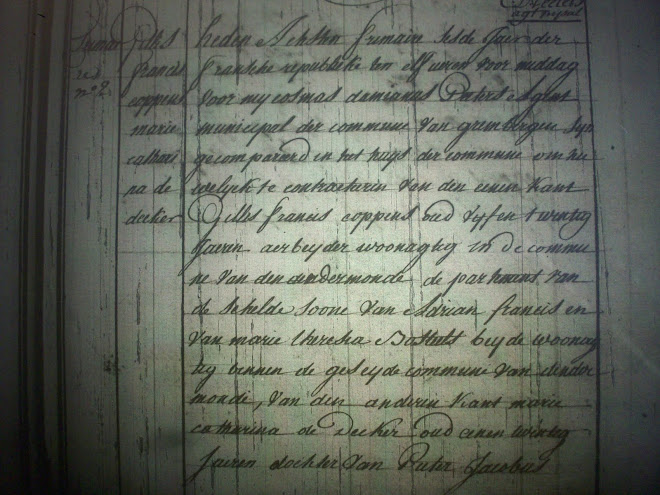 agt mpal
frimair
res
n° 2
gilles
francis
coppens
marie
cathari
na de
decker
heden Achsten frimaire sesde Jaer der
franche republieke ten elf uren voor middag
voor my cosmas damianus Peeters Agent
municipael der commune van grimbergen syn
gecompareerd in het huys der commune om hu
welyck te contracteren van den eenen kant
Gilles francis coppens oud vyf en twintig
Jaeren aerbeyder woonagtig in de commu
ne van den dendermonde departement van
de schelde soone van Adrian francis en
van marie theresia beyde woonag
tig binnen de geseyde commune van dender
monde, van den anderen kant marie
catharina de Decker oud eenen twintig
Jaeren dochter van Peeter Jacobus